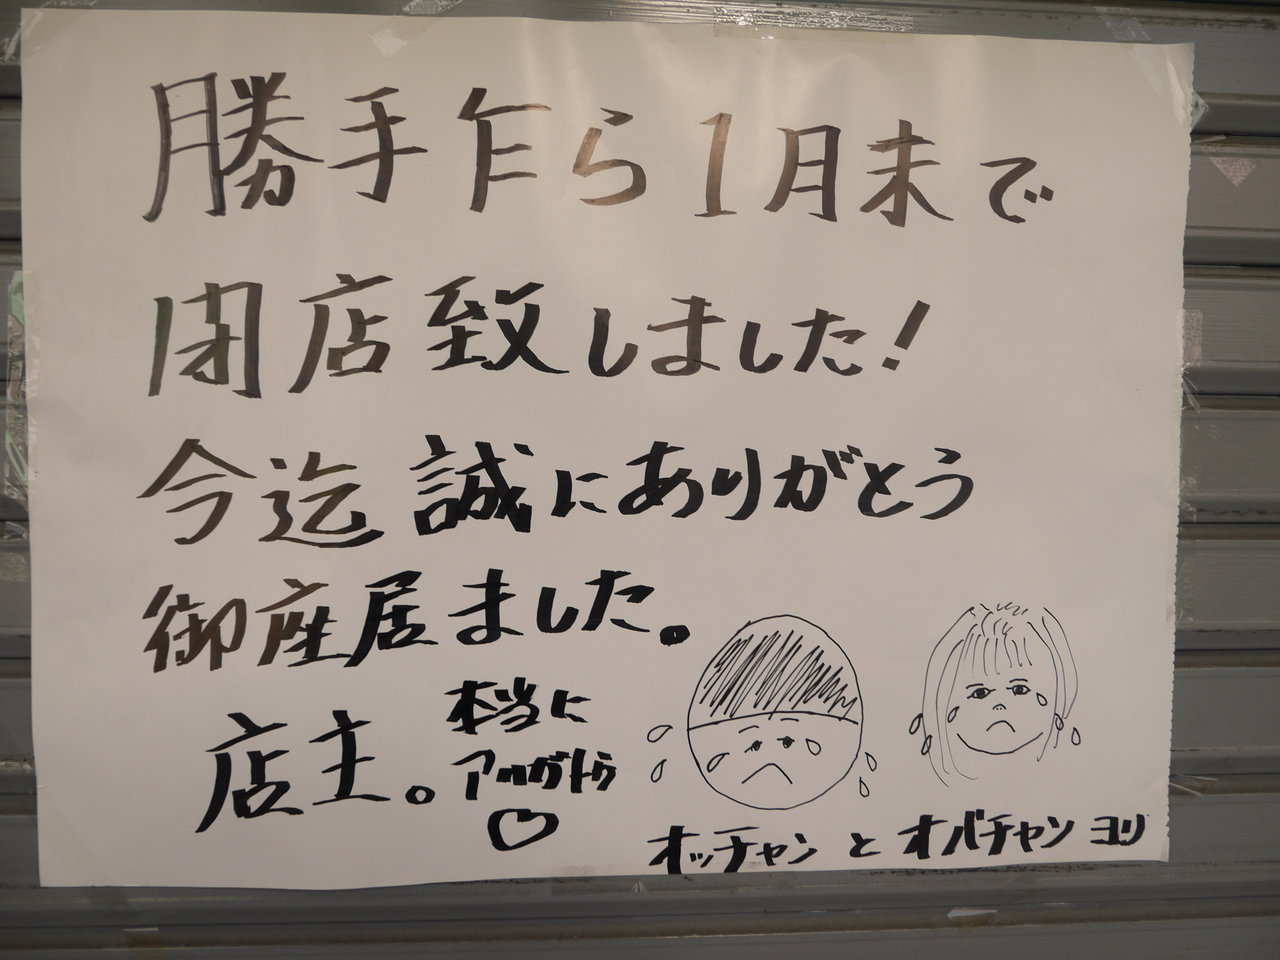 勝手乍ら1月末で
閉店致しました!
今迄誠にありがとう
御座居ました。
店主。
本当に
アリガトウ
♡
オッチャンとオバチャンヨリ